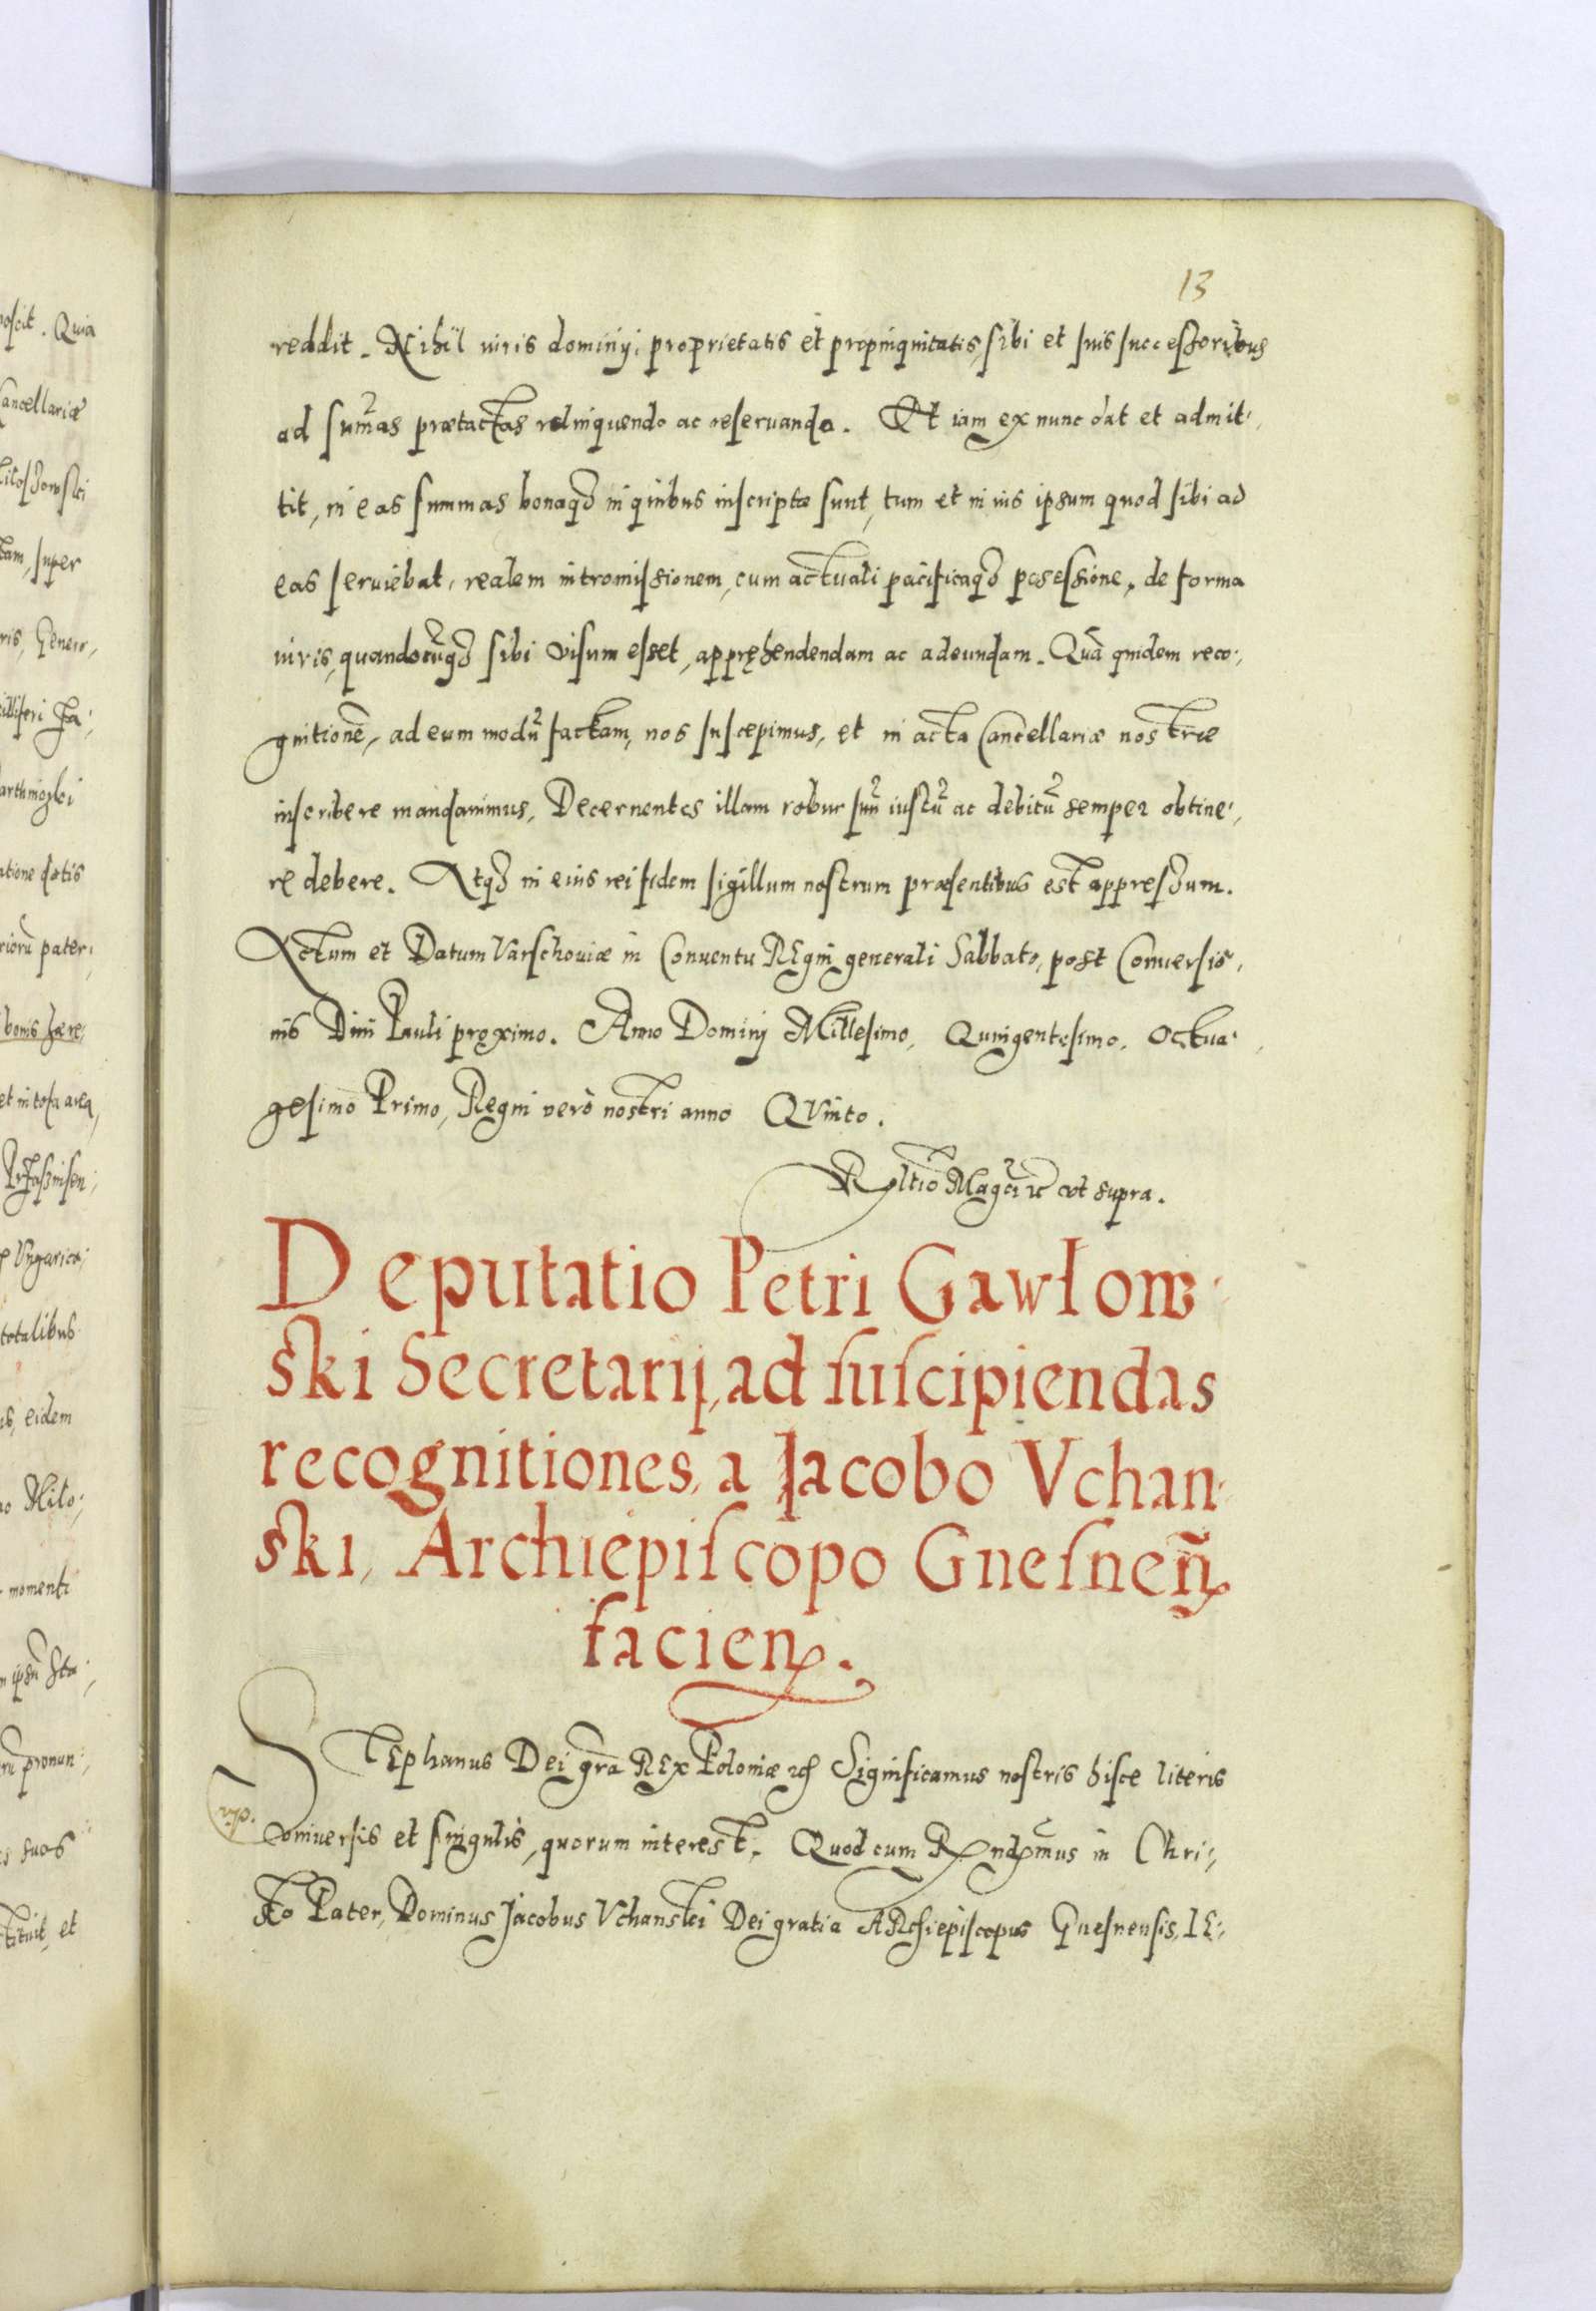 13
reddit. Nihil iuris dominij, proprietatis et propinquitatis, sibi et suis successoribus
ad sum̄as prætactas relinquendo ac reseruando. Et iam ex nunc dat et admit-
tit, in eas summas bonaqȝ in quibus inscriptæ sunt, tum et in ius ipsum quod sibi ad
eas seruiebat, realem intromissionem, cum actuali pacificaqȝ possessione, de forma
iuris, quandocūqȝ sibi visum esset, apprȩhendendam ac adeundam. Quā quidem reco-
gnitionē, ad eum modū factam, nos suscepimus, et in acta Cancellariæ nostræ
inscribere mandauimus, Decernentes illam robur suū iustū ac debitū semper obtine-
re debere. Atqȝ in eius rei fidem sigillum nostrum præsentibus est appressum.
Actum et Datum Varschouiæ in Conuentu REgni generali Sabbato, post Conuersio-
nis Diui Pauli proximo. Anno Dominj Millesimo, Quingentesimo, Octua-
gesimo Primo, Regni verò nostri anno QVinto.
Rltio Magci ꝛc vt supra.
Deputatio Petri Gawłow-
ski Secretarij, ad suscipiendas
recognitiones, a Jacobo Vchan-
ski, Archiepiscopo Gnesneñ
facien.
STEphanus Dei gra REx Poloniæ ꝛc Significamus nostris hisce literis
vniuersis et singulis, quorum interest, Quod cum Rndmus in Chri-
sto Pater, Dominus Jacobus Vchanski Dei gratia ARchiepiscopus Gnesnensis, LE-